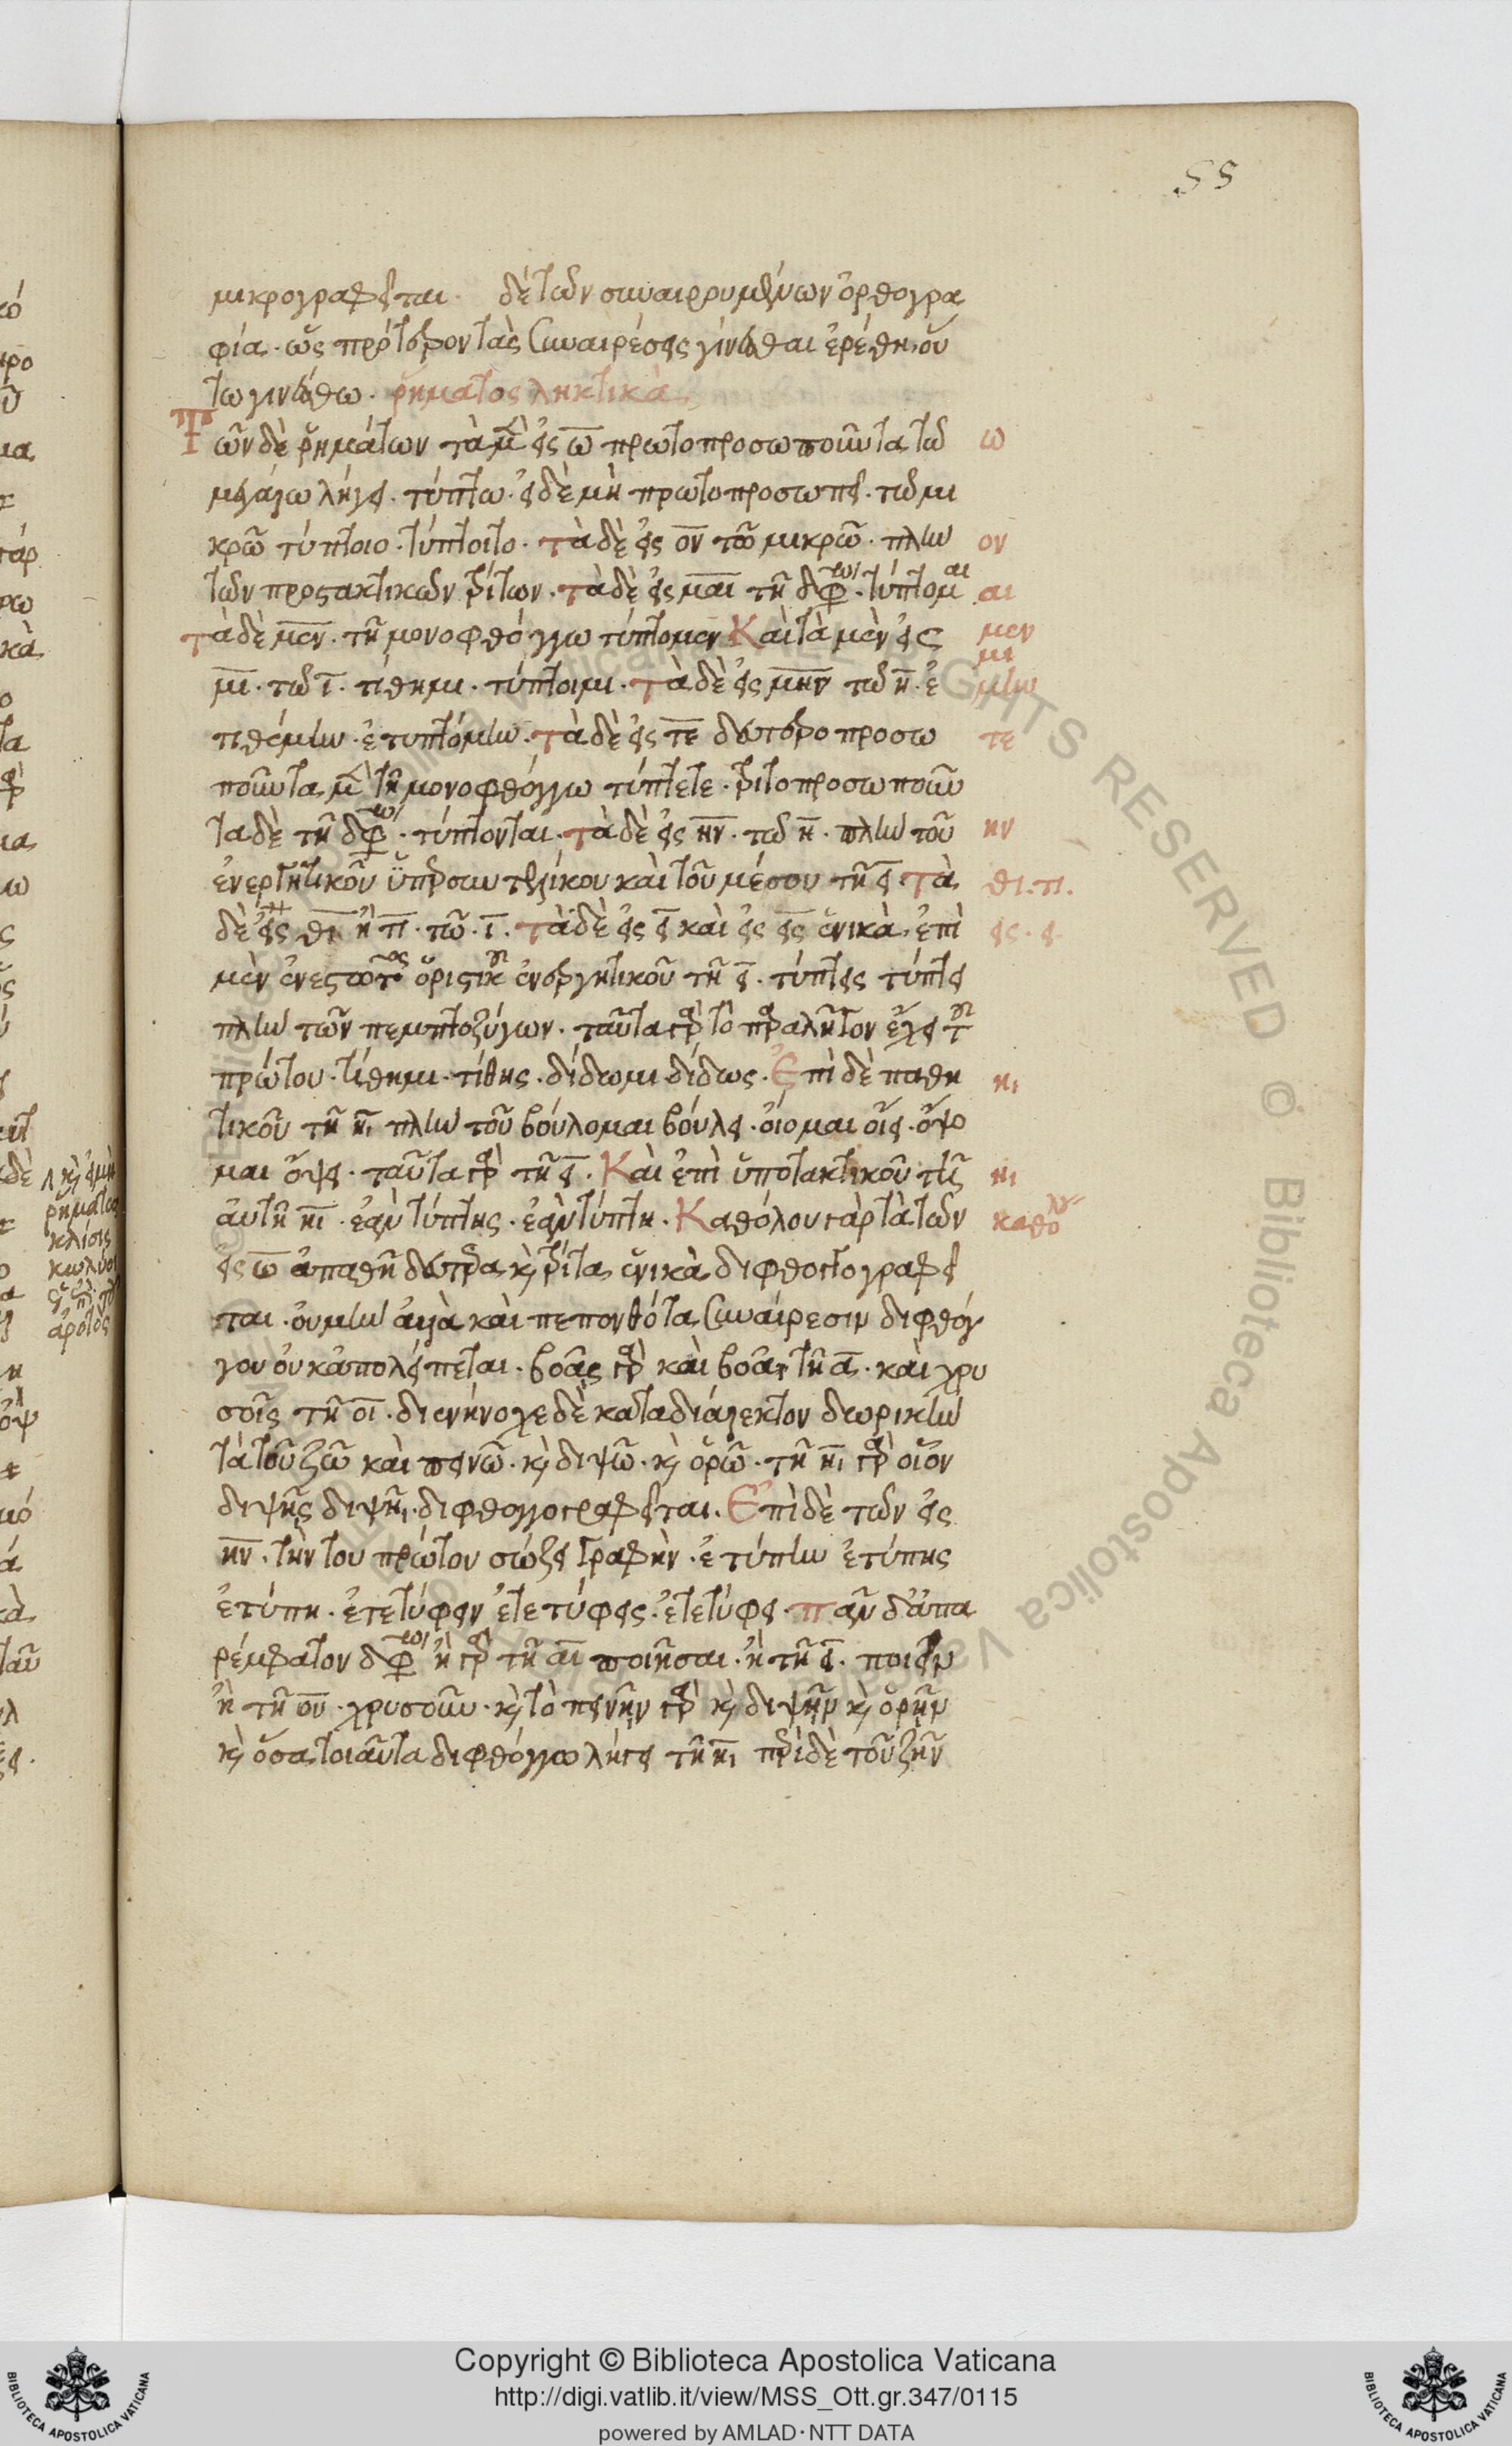 55
μικρογραφεῖται. δὲ τῶν συναιρουμένων ὀρθογρα
φία. ὡς πρότερον τὰς συναιρέσεις γίνεσθαι ἐρέθη, οὕ
τω γινέσθω. ῥήματος ληκτικὰ
Τῶν δὲ ῥημάτων τὰ μὲν εἰς ω πρωτοπροσωποῦντα τῶ ω
μεγάλω λήγει. τύπτω. εἰ δὲ μὴ πρωτοπροσωπεῖ. τῶ μι
κρῶ τύπτοιο. τύπτοιτο. τὰ δὲ εἰς ον τῶ μικρῶ. πλὴν ον
τῶν προστακτικῶν τρίτων. τὰ δὲ εἰς μαι τῆ διφθόγγω. τύπτομαι αι
τὰ δὲ μεν. τῆ μονοφθόγγω τύπτομεν Καὶ τὰ μὲν εἰς μεν
μι. τῶ ι. τίθημι. τύπτοιμι. τὰ δὲ εἰς μην τῶ η. ἐ μι μην
τιθέμην. ἐτυπτόμην. τὰ δὲ εἰς τε δευτεροπροσω τε
ποῦντα μὲν τῆ μονοφθόγγω τύπτετε. τριτοπροσωποῦν
τα δὲ τῆ διφθόγγω. τύπτονται. τὰ δὲ εἰς ην. τῶ η. πλὴν τοῦ ην
ἐνεργητικοῦ ὑπερσυντελίκου καὶ τοῦ μέσου τῆ ει. τὰ θι. τι.
δὲ εἰς θι ἢ τι. τῶ. ι. τὰ δὲ εἰς ει καὶ εἰς εις ἑνικὰ. ἐπὶ εις. ει.
μὲν ἐνεστῶτος ὁριστικοῦ ἐνεργητικοῦ τῆ ει. τύπτεις τύπτει
πλὴν τῶν πεμπτοζύγων. ταῦτα γὰρ τὸ παραλῆγον ἔχει τοῦ
πρώτου. τίθημι. τίθης. δίδωμι δίδως. Ἐπὶ δὲ παθη ηι
τικοῦ τῆ ηι πλὴν τοῦ βούλομαι βούλει. οἴομαι οἴει. ὄψο
μαι ὄψει. ταῦτα γὰρ τῆ ει. Καὶ ἐπὶ ὑποτακτικοῦ τῆς ηι
αὐτῆ ηι. ἐὰν τύπτης. ἐὰν τύπτη. Καθόλου γὰρ τὰ τῶν καθόλου
εἰς ω ἀπαθῆ δεύτερα κὶ τρίτα ἑνικὰ διφθογγογραφεῖ
ται. οὐ μὴν ἀλλὰ καὶ πεπονθότα συναίρεσιν διφθόγ
γου οὐκ ἀπολείπεται. βοᾶς γὰρ καὶ βοᾶ τῆ α. καὶ χρυ
σοῖς τῆ οι. διενήνοχε δὲ κατὰ διάλεκτον δωρικὴν
τὰ τοῦ ζῶ καὶ πεινῶ. κὶ διψῶ. κὶ ὁρῶ. τῆ ηι γὰρ οἷον
διψῆς διψῆι. διφθογγογραφεῖται. Ἐπὶ δὲ τῶν εἰς
ην. τὴν τοῦ πρώτου σώζει γραφὴν. ἐτύπην ἐτύπης
ἐτύπη. ἐτετύφειν ἐτετύφεις. ἐτετύφει. πᾶν δ' ἀπα
ρέμφατον διφθόγγω ἢ γὰρ τῆ αι ποιῆσαι. ἢ τῆ ει. ποιεῖν
ἢ τῆ ου. χρυσοῦν. κὶ τὸ πεινῆν γὰρ κὶ διψῆν κὶ ὁρῆν
κὶ ὅσα τοιαῦτα διφθόγγω λήγει τῆ ηι περὶ δὲ τοῦ ζῆν
Copyright © Biblioteca Apostolica Vaticana
http://digi.vatlib.it/view/MSS_Ott.gr.347/0115
powered by AMLAD·NTT DATA